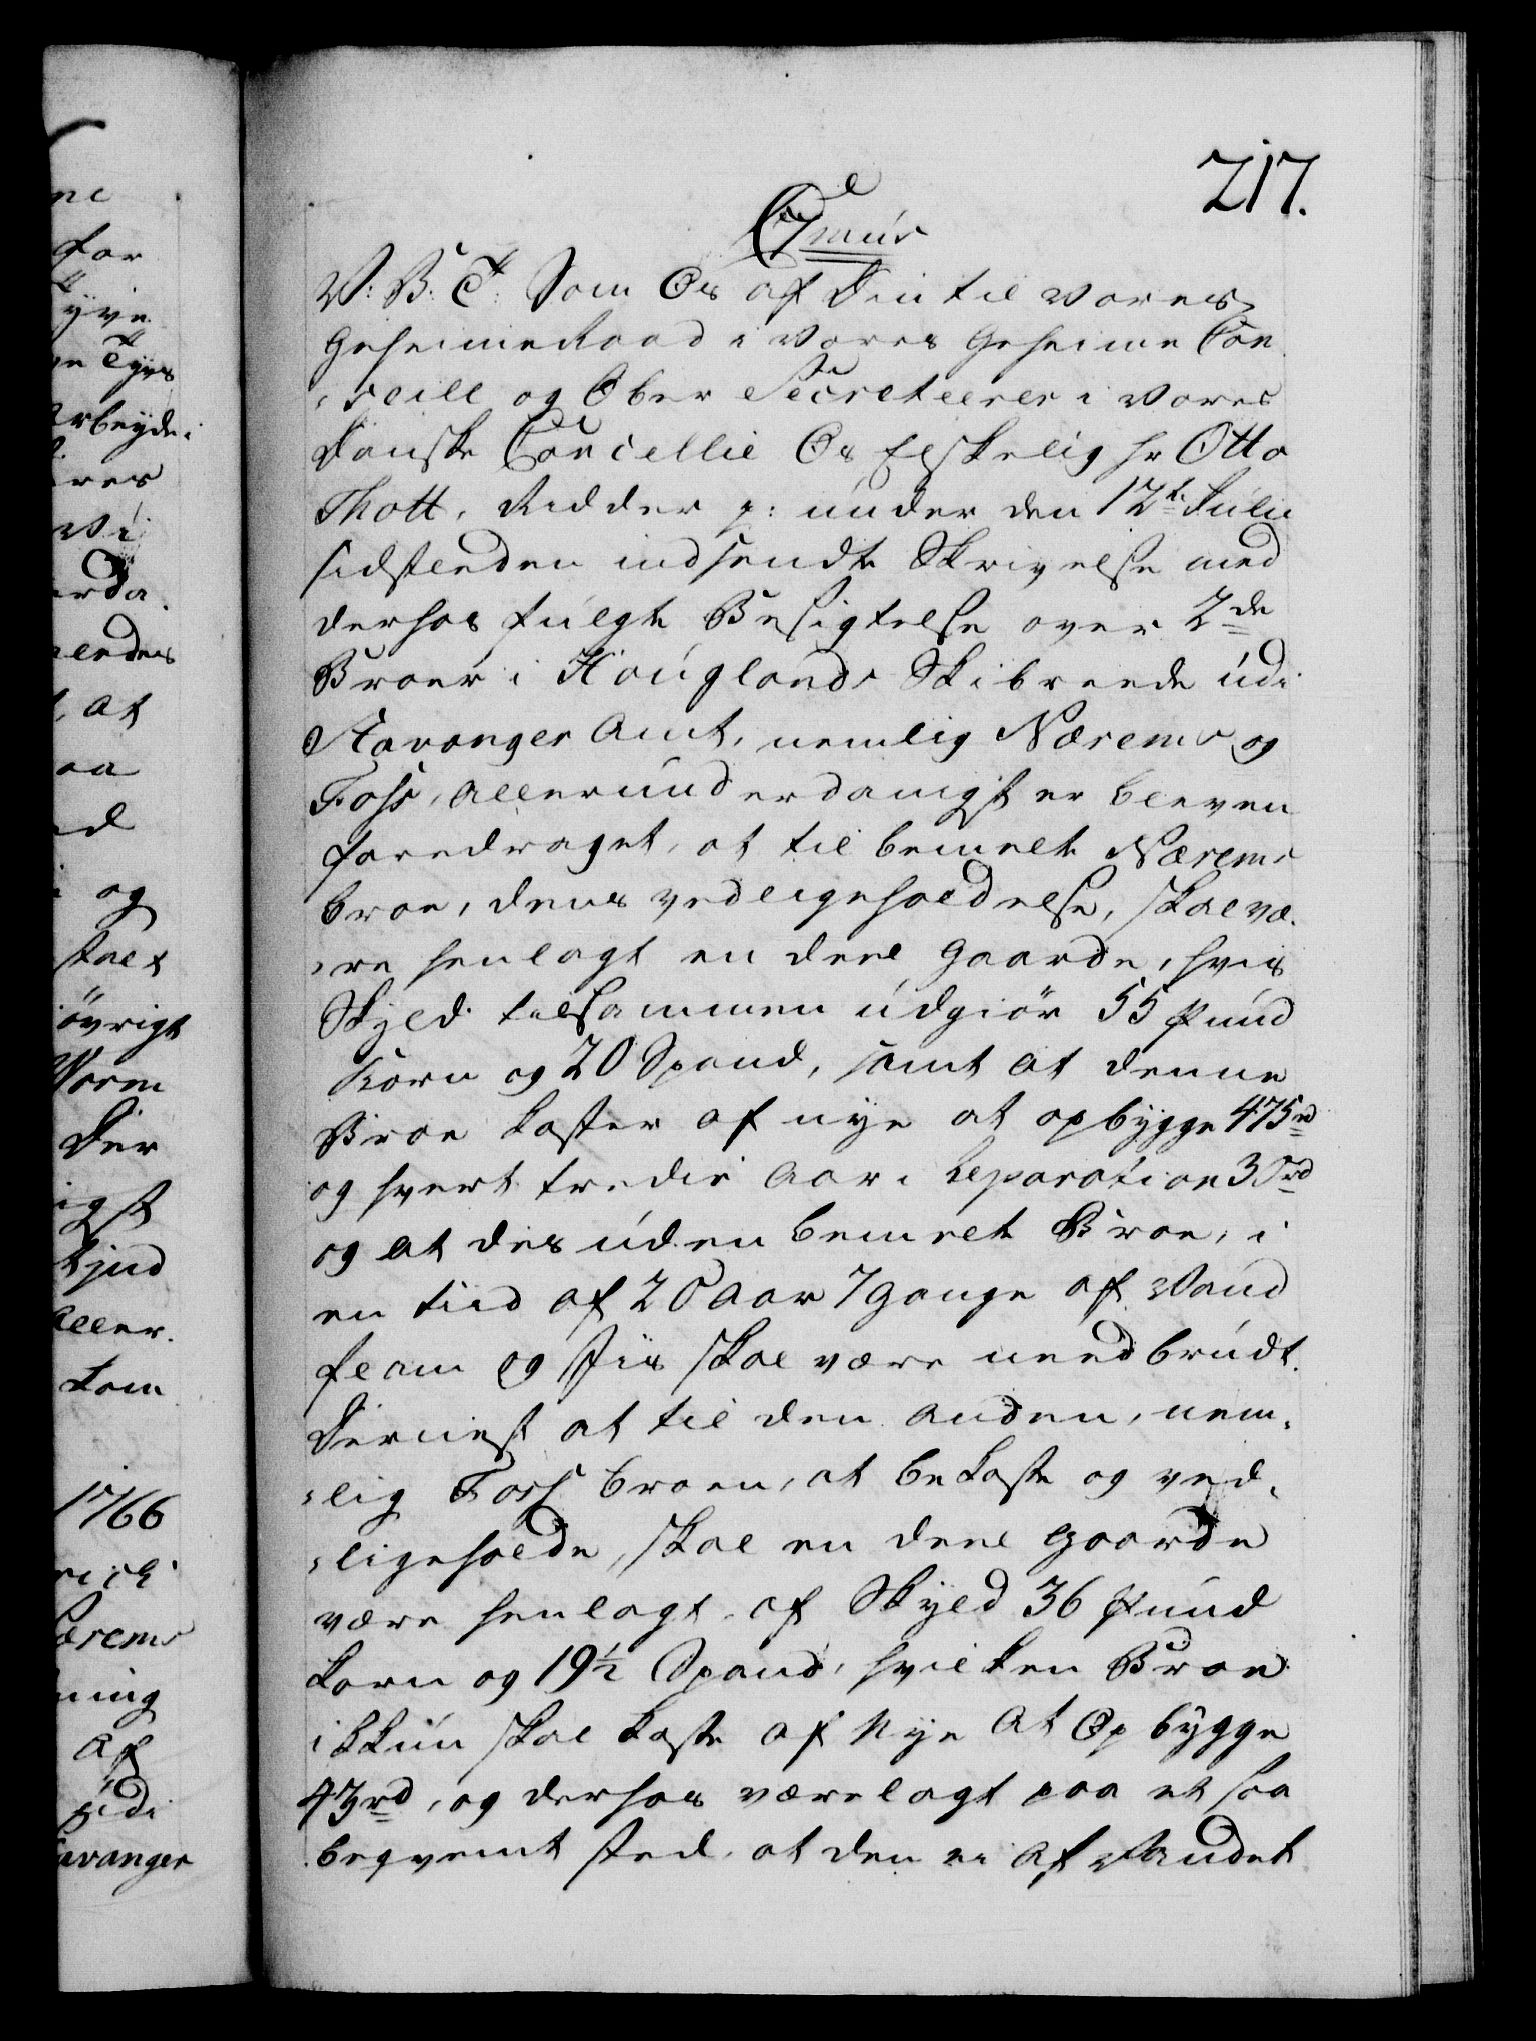 217.
Cmus
V: B: T: Som Os af Din til vores
Geheime Raad i vores Geheime Con-
seill og Ober Secreteerer i vores
Danske Cancellie Os Elskelig Hr Otto
Thott, Ridder p: under den 12te Julii
sidstleeden indsendte Skrivelse med
derhos fulgte Besigtelse over 2de
Broer i Houglands Skibreede udi
Stavanger Amt, nemlig Nærems og
Foss, allerunderdanigst er bleven
foredraget, at til bemelte Nærems
broe, dens vedligeholdelse, skal væ-
re henlagt en deel Gaarde, hvis
Skyld tilsammen udgiør 55 Pund
Korn og 20 Spand, samt at denne
Broe koster af nye at opbygge 475 rd
og hvert tredie Aar i Reparation 30 rd
og at des uden bemelte Broe, i
en tiid af 20 Aar 7 Gange af Vand
flom og Iis skal være needbrudt.
Dernest at til den anden, nem-
lig Foss broen, at bekoste og ved-
ligeholde, skal en deel Gaarde
være henlagt af Skyld 36 Pund
Korn og 19½ Spand, hvilken Broe
ikkun skal koste af Nye at Opbygge
43 rd, og derhos være lagt paa et saa
beqvemt sted, at den ei af Vandet
for
yve
Arbeyde
res
vi
at
og
øvrigt
Norm
Der
igst
aller
som
1766
ærems
ning
af
udi
avanger